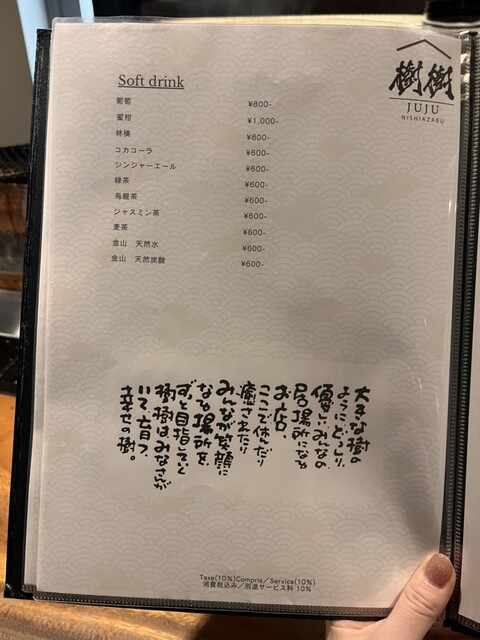 樹樹
JUJU
NISHIAZABU
Soft drink
葡萄 ¥800-
蜜柑 ¥1,000-
林檎 ¥800-
コカコーラ ¥600-
ジンジャーエール ¥600-
緑茶 ¥600-
烏龍茶 ¥600-
ジャスミン茶 ¥600-
麦茶 ¥600-
金山 天然水 ¥600-
金山 天然炭酸 ¥600-
大きな樹の
ようにどっしり
優しいみんなの
居場所になる
お店。
ここで休んだり
癒されたり
みんなが笑顔に
なる場所を
ずっと目指していく
樹樹はみなさんが
いて育つ
幸せの樹。
Taxe(10%)Compris/Service(10%)
消費税込み/別途サービス料 10%